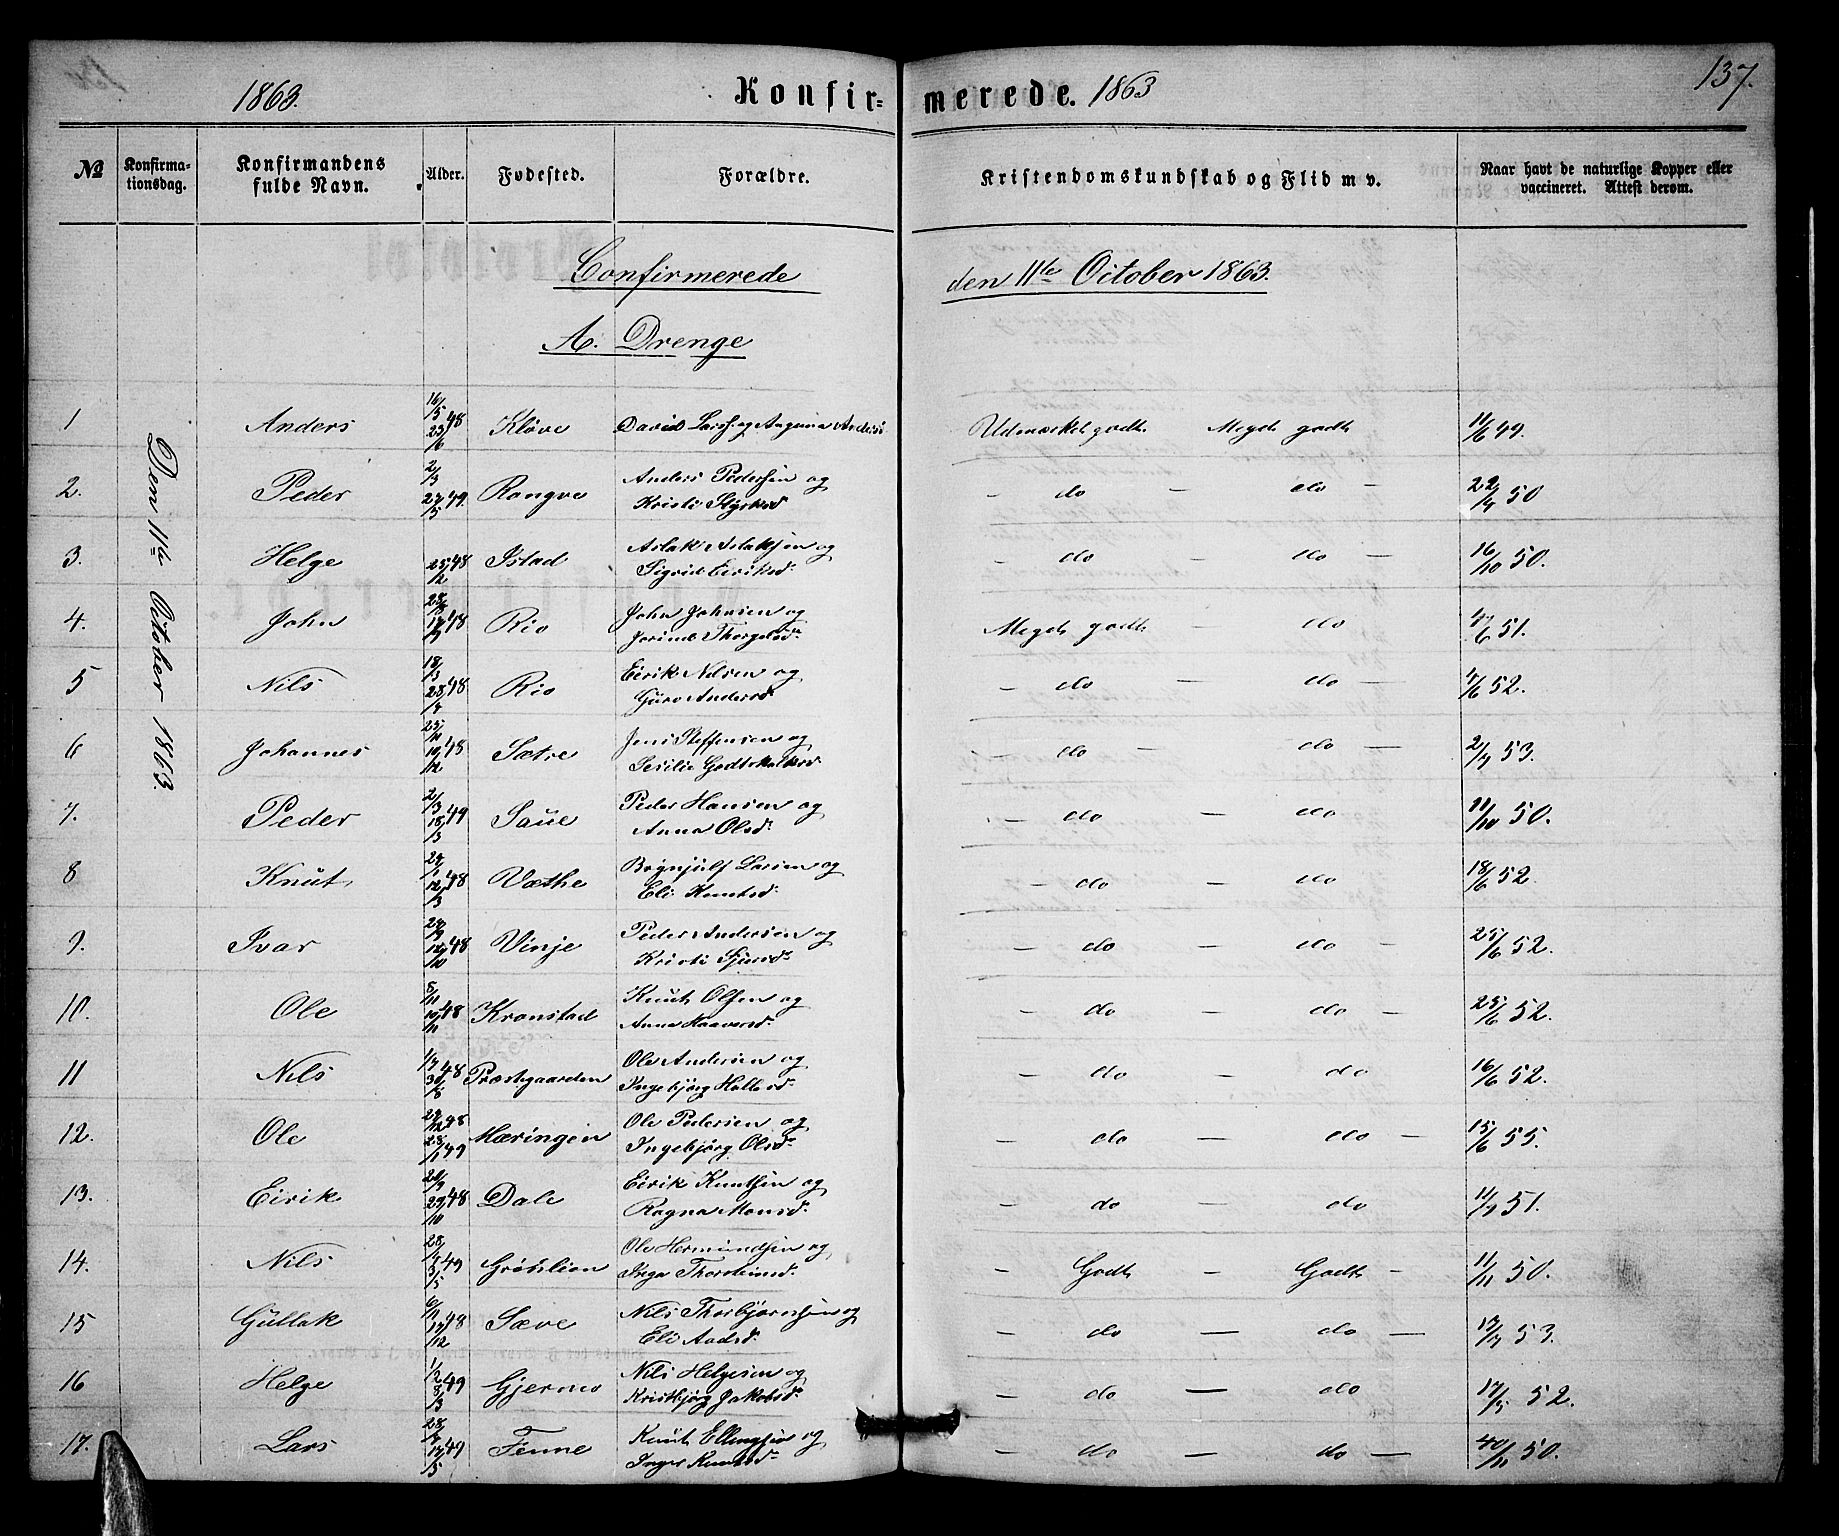 1863. Konfir= merede. 1863 137.
No Konfirma-tionsdag. Konfirmandens fulde Navn. Alder. Fødested. Forældre. Kristendomskundskab og Flid m v. Naar havt de naturlige Kopper eller vaccineret. Attest derom.
Confirmerede den 11te October 1863.
A. Drenge
Den 11te October 1863.
1 Anders 16/5 48 23/6 Kløve David Larss. og Anders Udmærket godt Meget godt 11/6 49.
2. Peder 2/3 49. 27/5 Rongve Anders Pedersen og Kristi Styrksd - do - do - 22/4 50
3. Helge 48 25/12 Istad Aslak Aslaksen og Sigrid Eiriksd. - do - do - 16/10 50.
4. John 48 Rio John Johnsen og Jorind Thorgelsd. Meget godt - do 51.
5 Nils 18/3 48 Rio Eirik Nilsen og Guro Andersd. - do - do - 52.
6 Johannes 48 10/12 Sætre Jens Steffensen og Sesilie Godtskalksd. - do - do - 2/7 53.
7. Peder 2/3 49 18/3 Saue Peder Hansen og Anna Olsd. - do - do 11/10 50.
8 Knut 48 12/3 Væthe Brynjulf Larsen og Eli Knutsd. - do - do 18/6 52.
9. Ivar 48 Vinje Peder Andersen og Kristi Sjursd. - do - do - 25/6 52.
10. Ole 5/11 48 10/11 Kronstad Knut Olsen og Anna Haaversd. - do - do - 25/6 52.
11 Nils 1/7 48 30/8 Præstegaarden Ole Andersen og Ingebjørg Hallesd. - do - do 16/6 52.
12. Ole 48 28/1 49 Mæringen Ole Pedersen og Ingebjørg Olsd. - do - do - 15/6 55.
13. Eirik 48 29/10 Dale Eirik Knutsen og Ragna Monsd. - do - do 11/7 51.
14. Nils 28/4 49 3/5 Grøthlien Ole Hermundsen og Inga Thorsteinsd. - Godt - Godt - 11/11 50.
15 Gullak 6/11 48 17/12 Sæve Nils Thorbjørnsen og Eli Aadsd. - do - do - 17/7 53.
16 Helge 1/2 49 8/3 Gjerme Nils Helgesen og Kristbjørg Jakobsd. - do - do 17/5 52.
17. Lars 49 17/5 Finne Knut Ellingsen og Inger Knutsd. - do - do - 50.